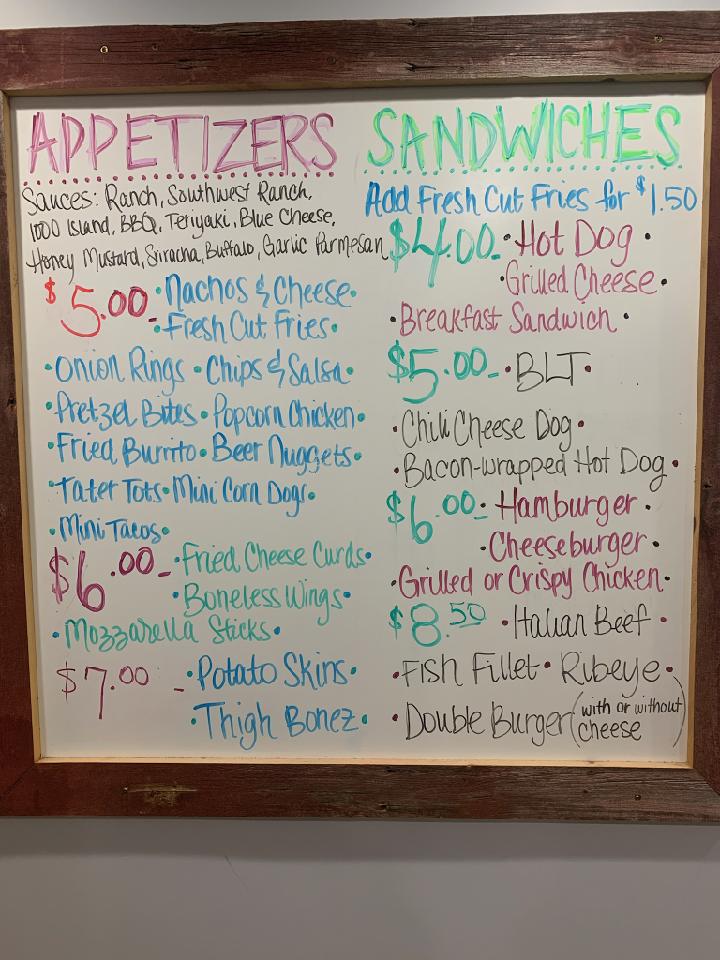 APPETIZERS
Sauces: Ranch, Southwest Ranch,
1000 Island, BBQ, Teriyaki, Blue Cheese,
Honey Mustard, Siracha, Buffalo, Garlic Parmesan
$5.00- •Nachos & Cheese•
•Fresh Cut Fries•
•Onion Rings •Chips & Salsa•
•Pretzel Bites •Popcorn Chicken•
•Fried Burrito •Beer Nuggets•
•Tater Tots •Mini Corn Dogs•
•Mini Tacos•
$6.00- •Fried Cheese Curds•
•Boneless Wings•
•Mozzarella Sticks•
$7.00 - •Potato Skins•
•Thigh Bonez•
SANDWICHES
Add Fresh Cut Fries for $1.50
$4.00- •Hot Dog•
•Grilled Cheese•
•Breakfast Sandwich•
$5.00- •BLT•
•Chili Cheese Dog•
•Bacon-wrapped Hot Dog•
$6.00- •Hamburger•
•Cheeseburger•
•Grilled or Crispy Chicken•
$8.50 •Italian Beef•
•Fish Fillet• Ribeye•
•Double Burger (with or without
cheese)